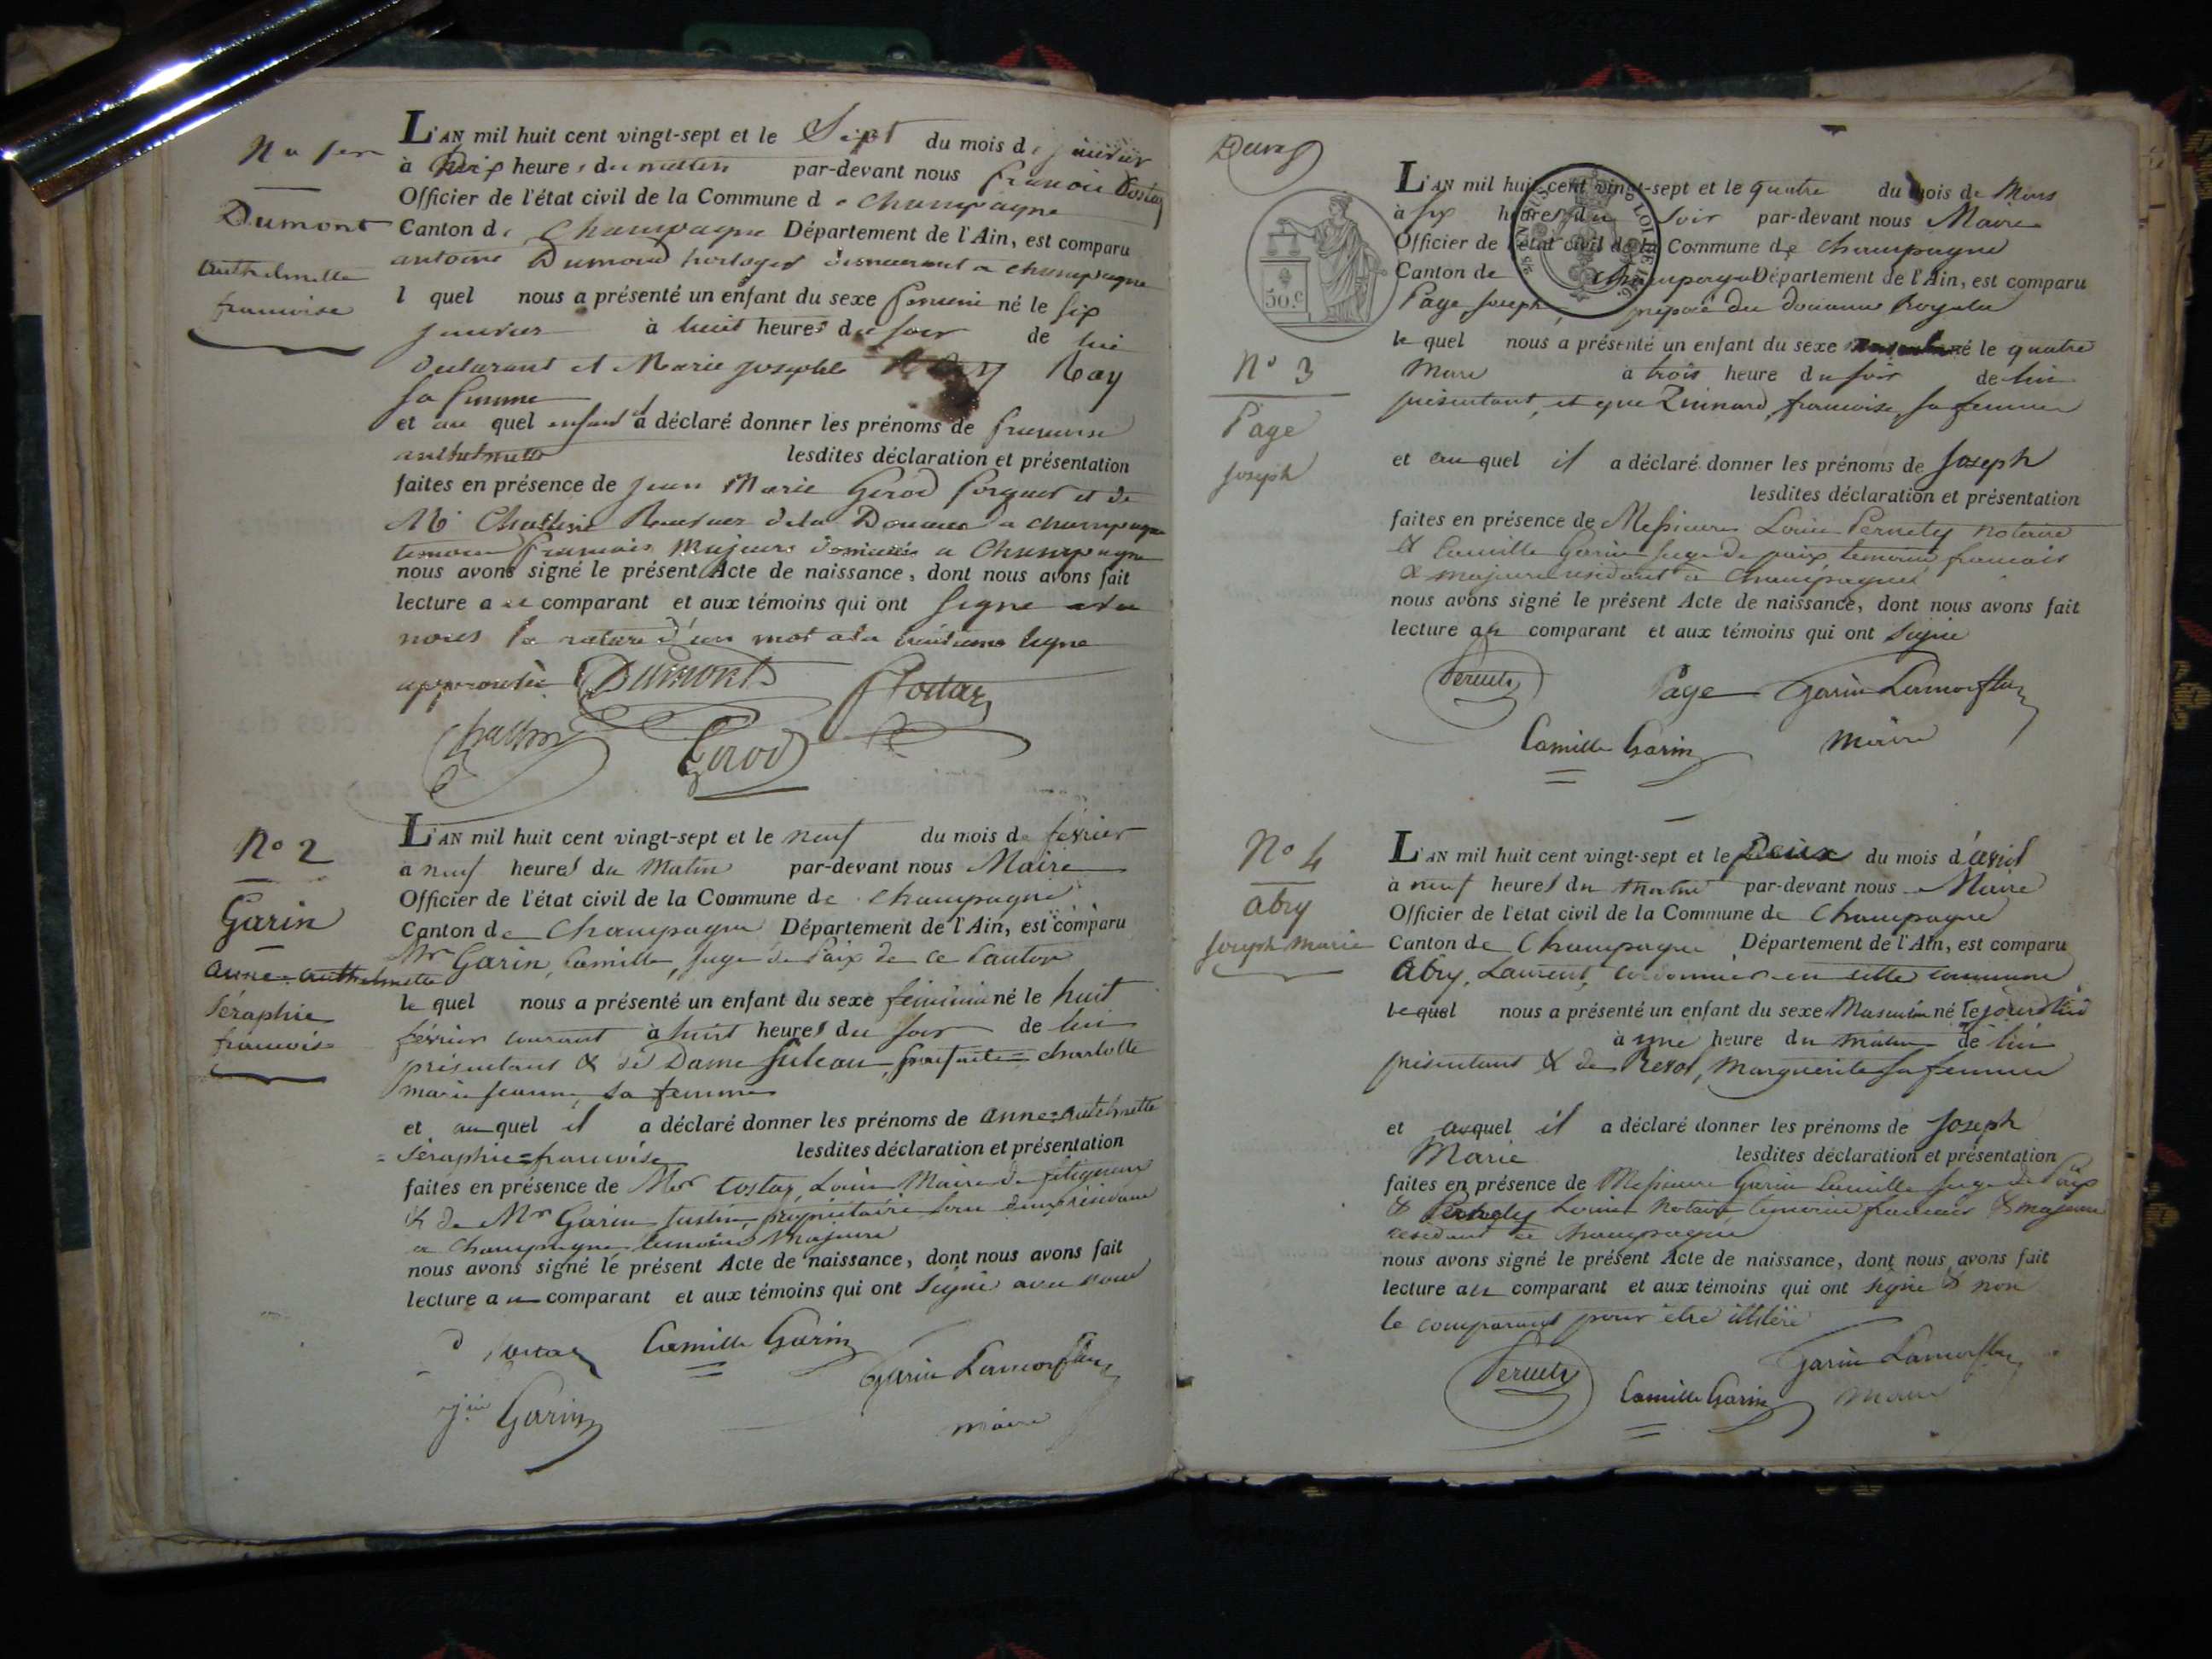 No 1er
Dumont
anthelmette
francoise
L'AN mil huit cent vingt-sept et le Sept du mois de janvier
à Dix heures du matin par-devant nous francois Costaz
Officier de l'état civil de la Commune de Champagne
Canton de Champagne Département de l'Ain, est comparu
antoine Dumond horloger demeurant a champagne
l quel nous a présenté un enfant du sexe feminin né le six
janvier à huit heures du soir de lui
declarant et Marie josephte Ray
sa femme
et au quel enfant il a déclaré donner les prénoms de francoise
anthelmette lesdites déclaration et présentation
faites en présence de jean Marie Gerod et de
Mr de la Douane a champagne
temoins francais Majeurs domiciliés a Champagne
nous avons signé le présent Acte de naissance, dont nous avons fait
lecture a u comparant et aux témoins qui ont signe avec
nous la rature d'un mot a la huitieme ligne
approuvée Dumont Costaz
Gerod
No 2
Garin
anne-anthelmette
Séraphie
francoise
L'AN mil huit cent vingt-sept et le neuf du mois de février
a neuf heures du Matin par-devant nous Maire
Officier de l'état civil de la Commune de Champagne
Canton de Champagne Département de l'Ain, est comparu
Mr Garin, Camille, juge de Paix de ce Canton
le quel nous a présenté un enfant du sexe féminin né le huit
février courant à huit heures du soir de lui
présentant & de Dame Suleau, charlotte
marie jeanne, sa femme
et au quel il a déclaré donner les prénoms de anne=antelmette
=Séraphie=francoise lesdites déclaration et présentation
faites en présence de Mr Costaz, Louis Maire de
& de Mr Garin Justin, propriétaire
a Champagne temoins Majeurs
nous avons signé le présent Acte de naissance, dont nous avons fait
lecture a u comparant et aux témoins qui ont signé avec nous
Costaz Camille Garin
Garin Lamorflan
Jin Garin
maire
50.c
No 3
Page
Joseph
L'AN mil huit cent vingt-sept et le quatre du mois de Mars
à six heures du soir par-devant nous Maire
Officier de l'état civil de la Commune de Champagne
Canton de Champagne Département de l'Ain, est comparu
Page Joseph, préposé des douanes Royales
le quel nous a présenté un enfant du sexe né le quatre
Mars à trois heure du soir de lui
présentant, et que francoise, sa femme
et au quel il a déclaré donner les prénoms de Joseph
lesdites déclaration et présentation
faites en présence de Messieurs Louis Pernety notaire
& Camille Garin Juge de paix temoins francais
& majeurs résidant a Champagne
nous avons signé le présent Acte de naissance, dont nous avons fait
lecture au comparant et aux témoins qui ont signé
Page Garin Lamorflan
Camille Garin Maire
No 4
Abry
Joseph Marie
L'AN mil huit cent vingt-sept et le Deux du mois d'avril
à neuf heures du matin par-devant nous Maire
Officier de l'état civil de la Commune de Champagne
Canton de Champagne Département de l'Ain, est comparu
Abry, Laurent, cordonnier en cette commune
le quel nous a présenté un enfant du sexe Masculin né le jourd'hui
à une heure du matin de lui
présentant & de Marguerite sa femme
et auquel il a déclaré donner les prénoms de Joseph
Marie lesdites déclaration et présentation
faites en présence de Messieurs Garin Camille Juge de Paix
& Pernety Louis Notaire temoins francais & majeurs
résidant a Champagne
nous avons signé le présent Acte de naissance, dont nous avons fait
lecture au comparant et aux témoins qui ont signé & non
le comparant pour être illitéré
Garin Lamorflan
Camille Garin Maire